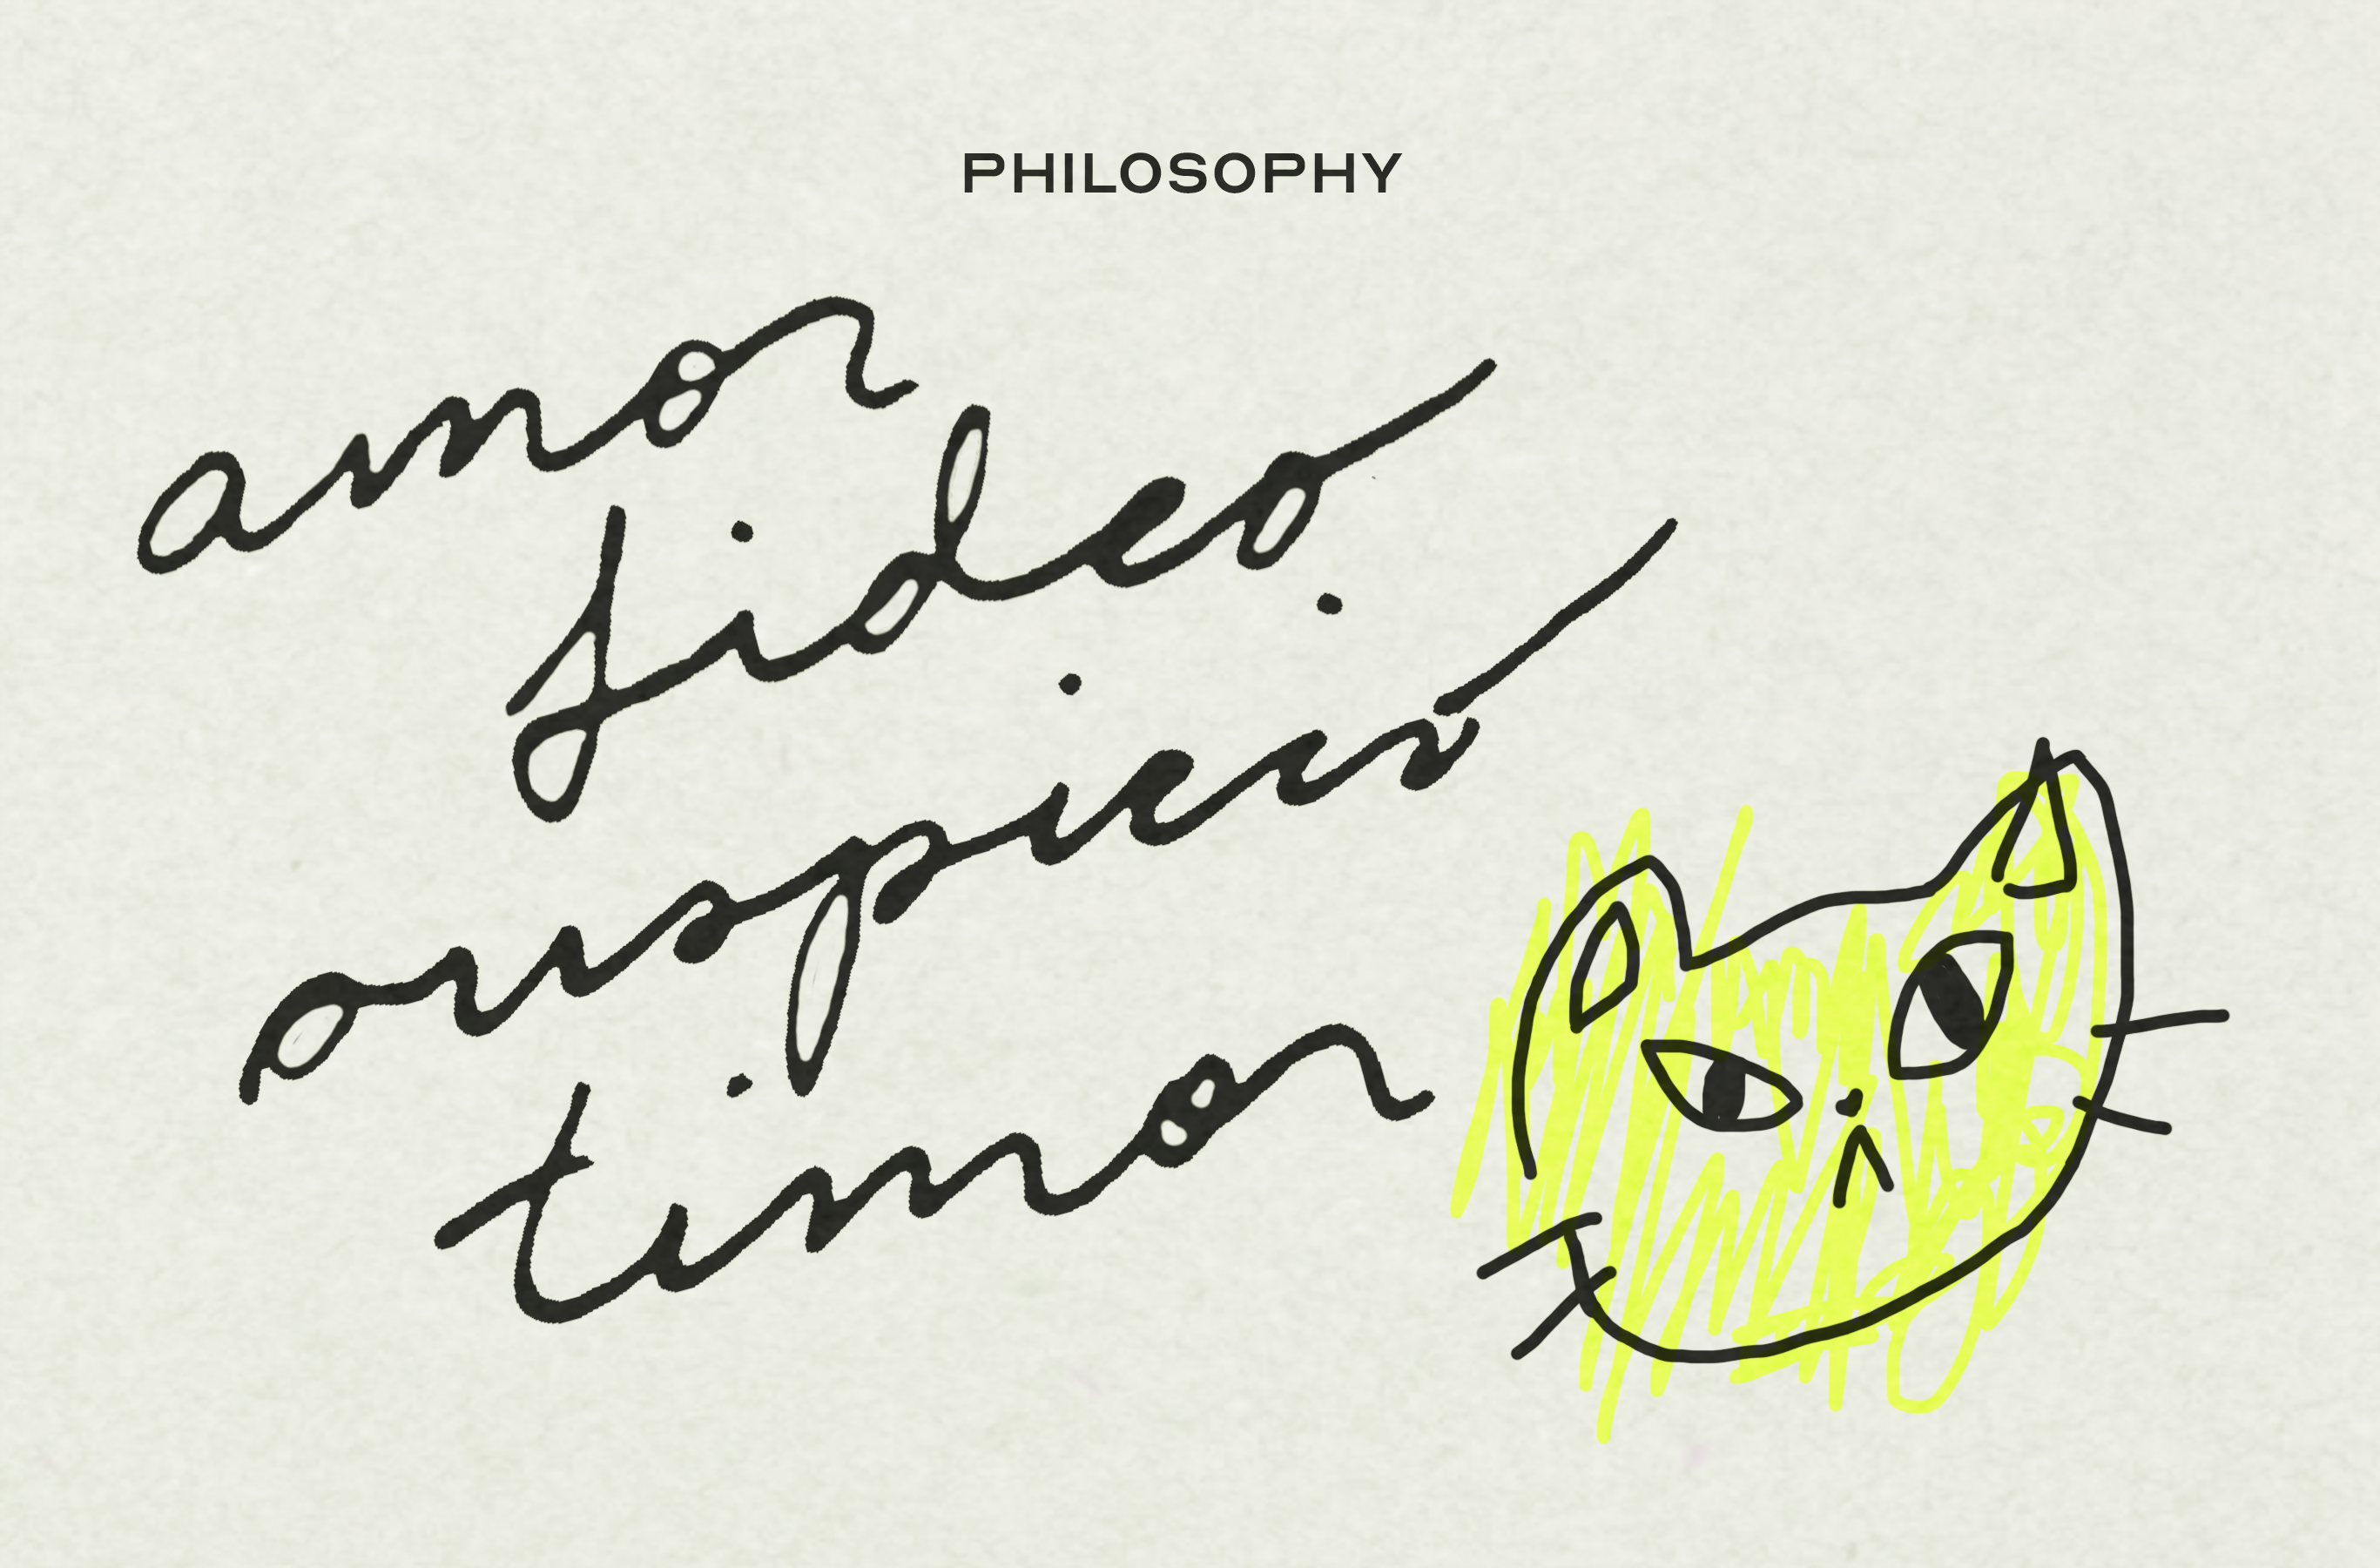 PHILOSOPHY
amor
fideo
suspicio
timor